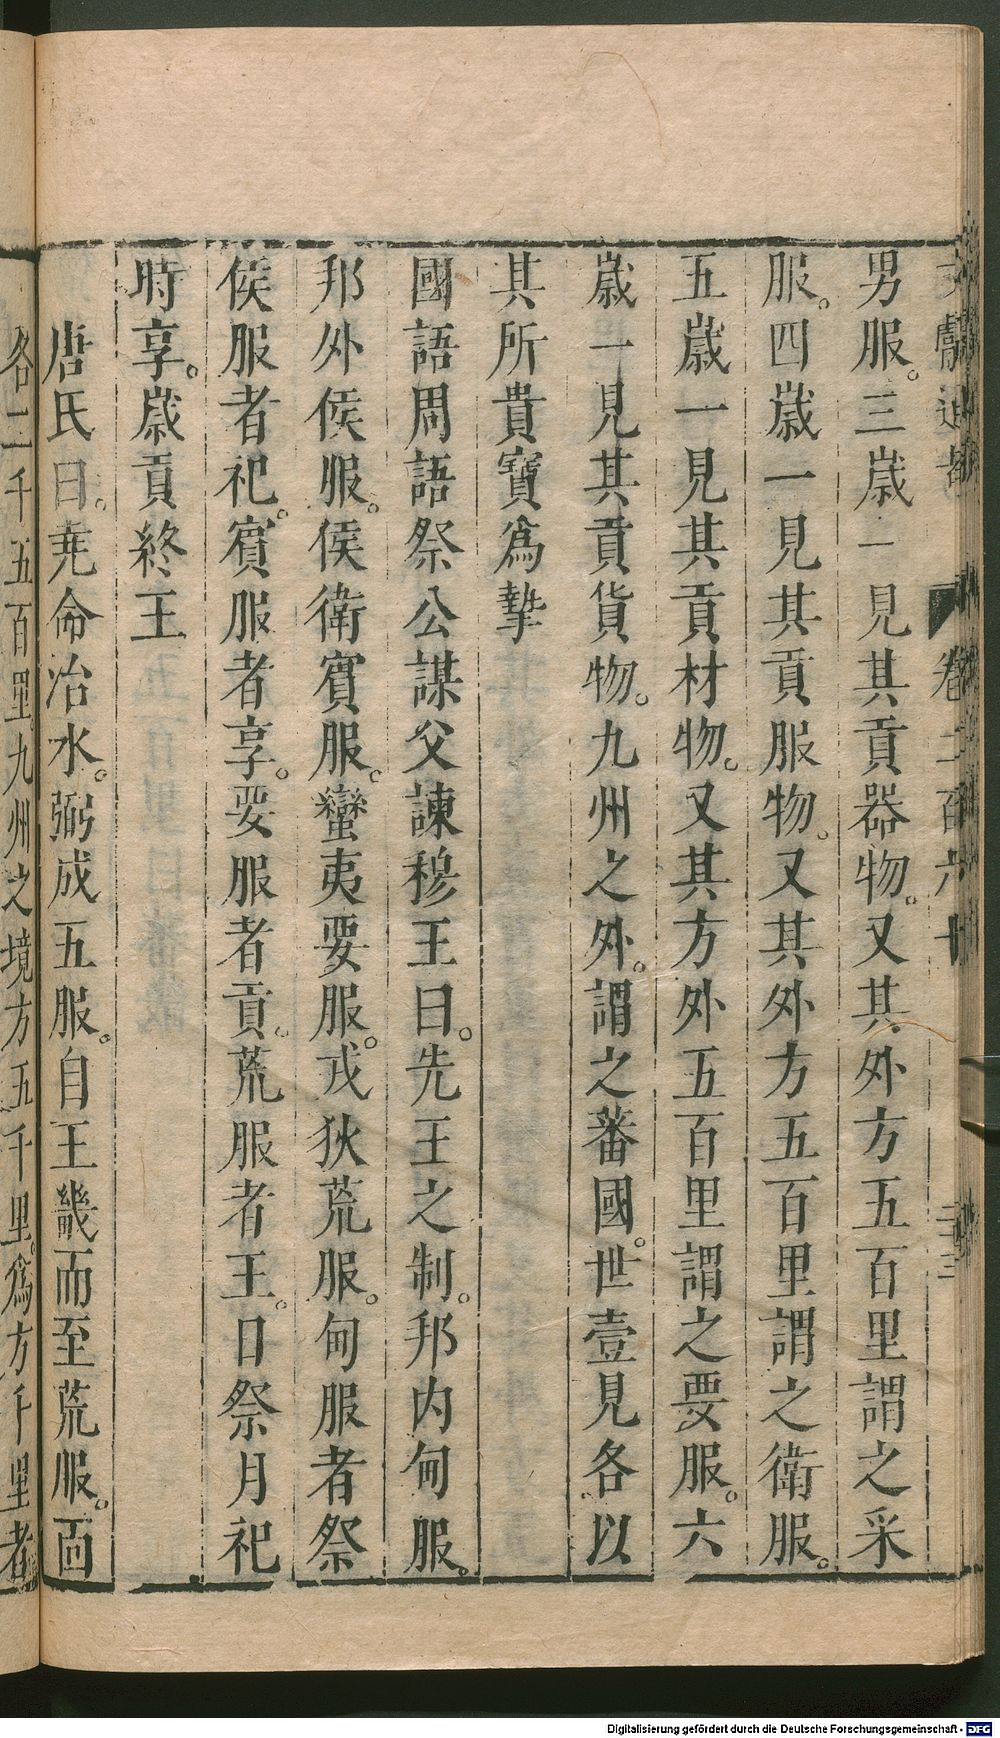 男服。三歲一見其貢器物。又其外方五百里謂之采
服。四歲一見其貢服物。又其外方五百里謂之衛服。
五歲一見其貢材物。又其方外五百里謂之要服。六
歲一見其貢貨物。九州之外。謂之蕃國。世壹見各。以
其所貴寶爲摯
國語周語祭公謀父諫穆王曰。先王之制。邦内甸服。
邦外侯服。侯衛賓服。蠻夷要服。戎狄荒服。甸服者祭
侯服者祀。賓服者享。要服者貢。荒服者王。日祭月祀
時享。歲貢終王
唐氏曰。堯命治水。弼成五服。自王畿而至荒服。面
各二千五百里九州之境方五千里。爲方千里者
卷二百六十
Digitalisierung gefördert durch die Deutsche Forschungsgemeinschaft - DFG